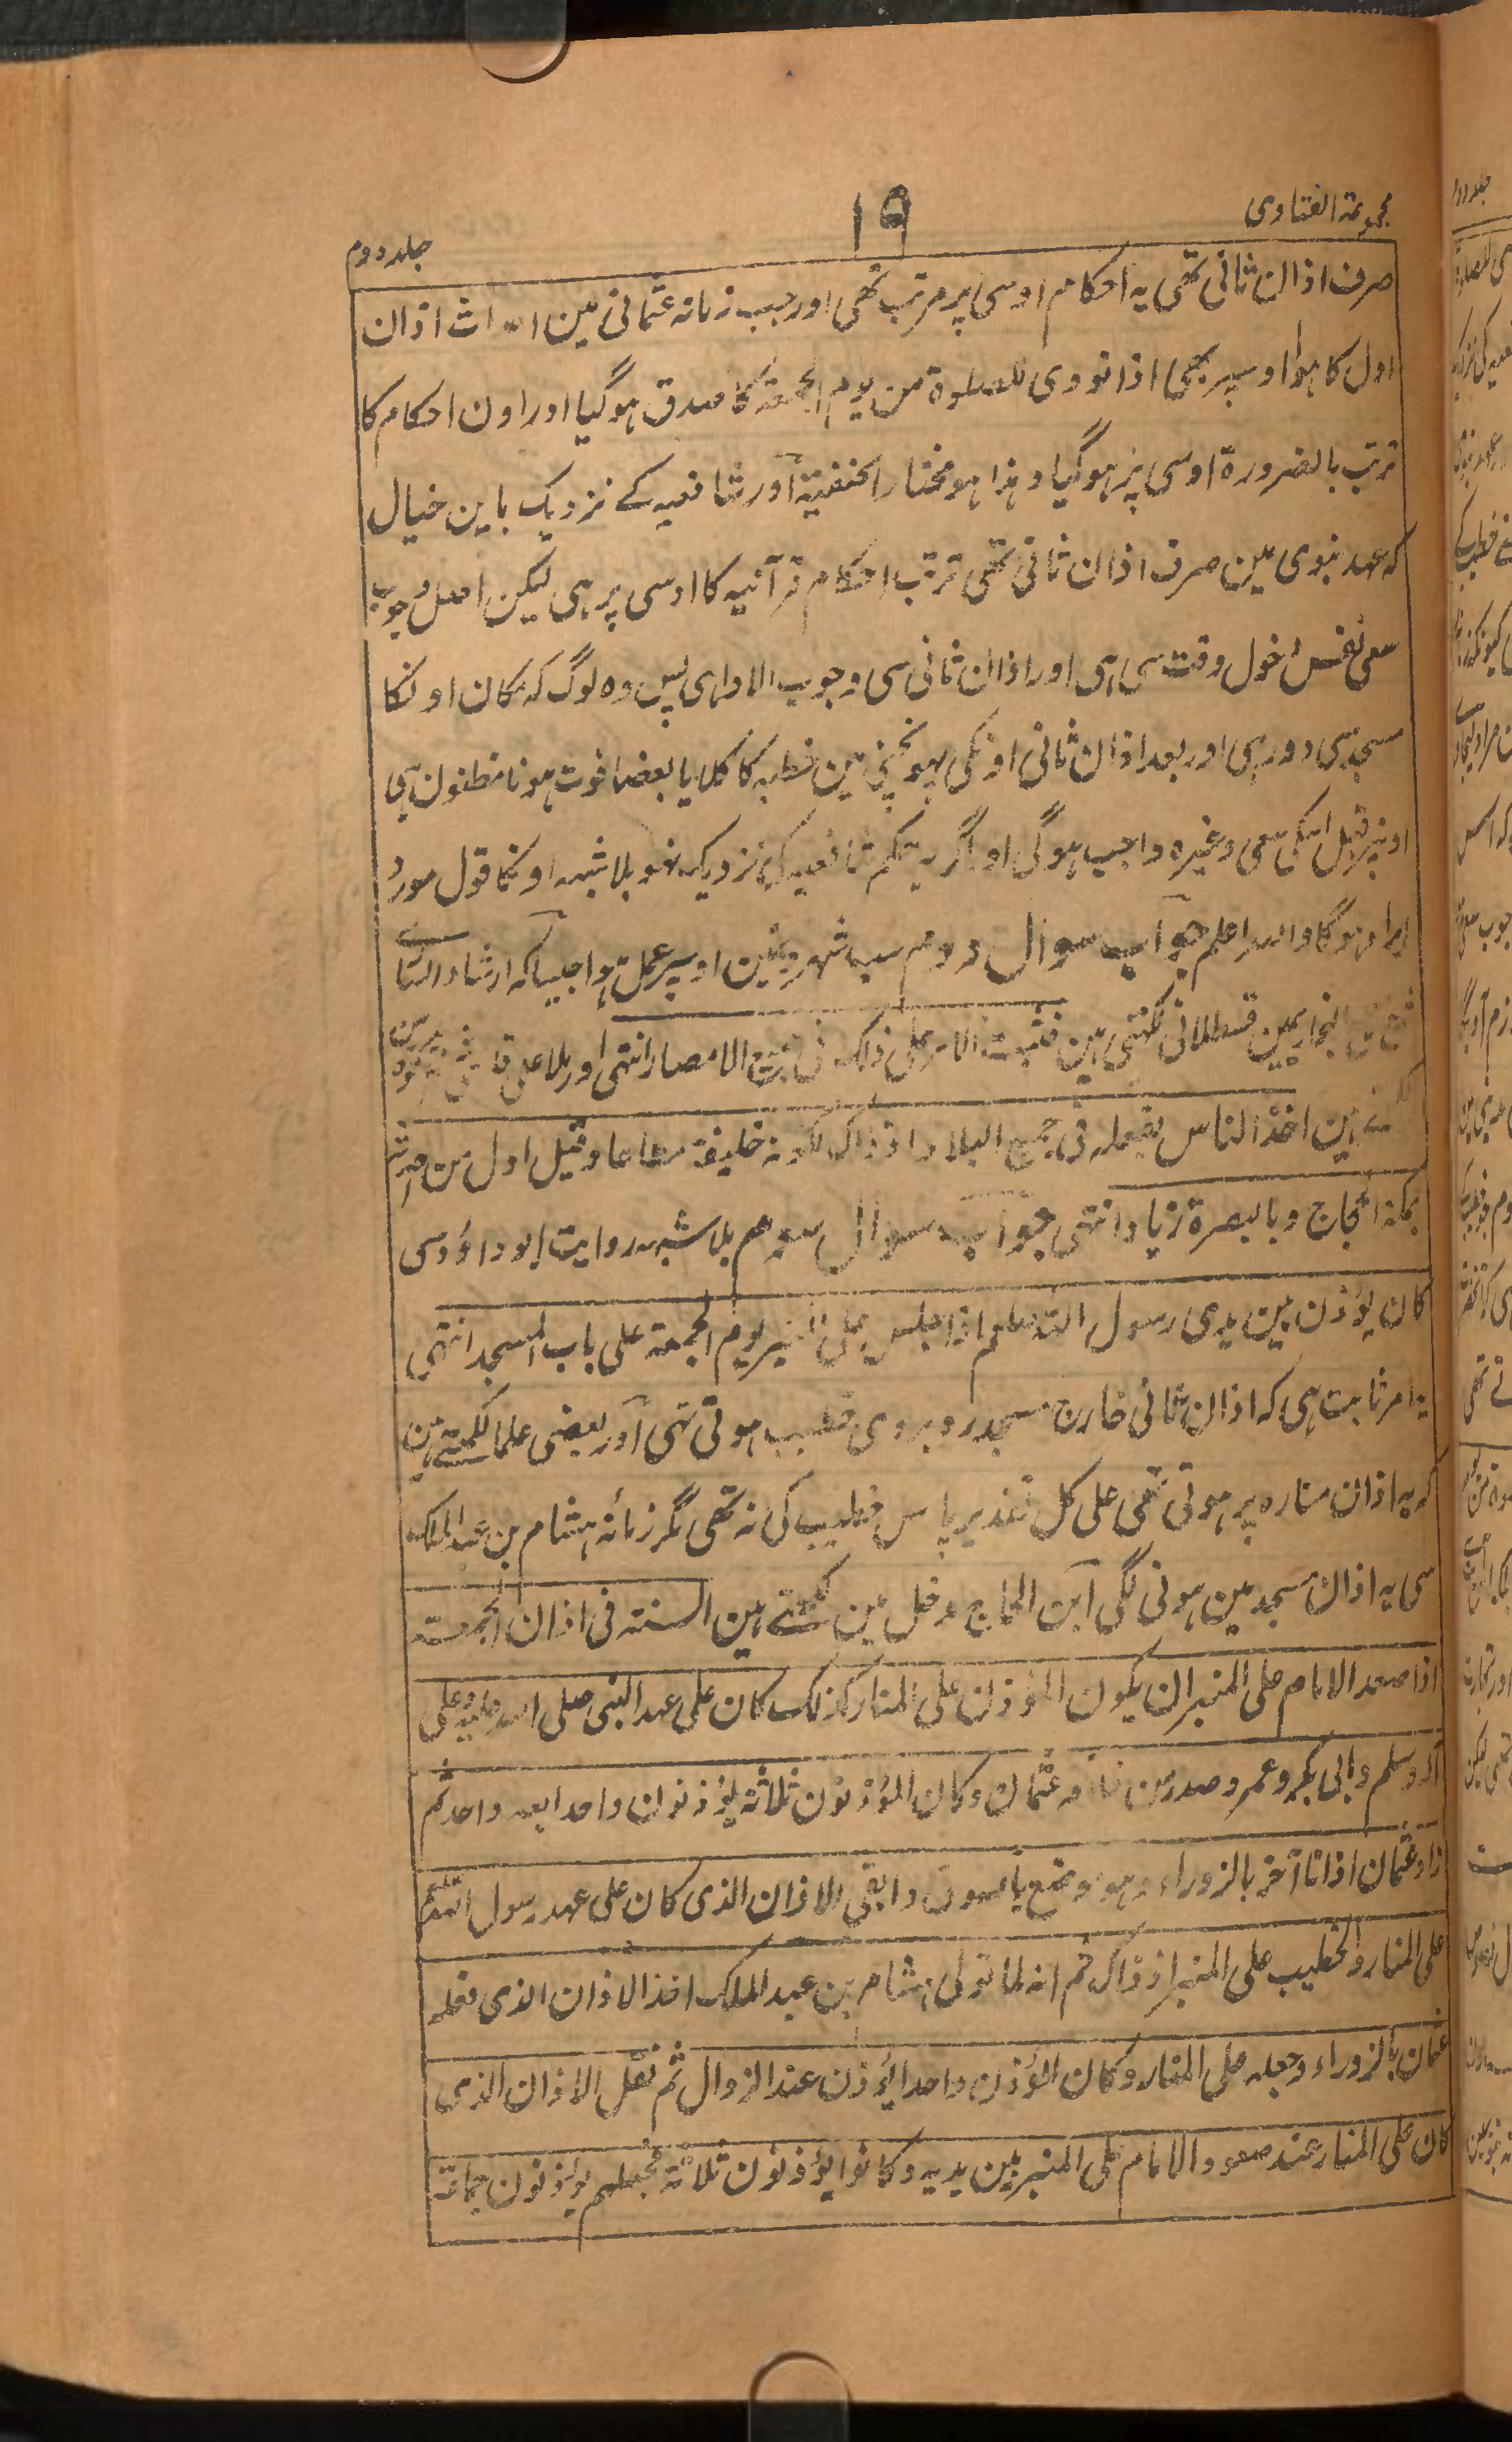 مجموعۃ الفتاوی
۱۹
جلد دوم
صرف اذان ثانی تھی یہ احکام اوسی پر مرتب تھی اور جب زمانہ عثمانی مین احداث اذان
اول کا ہوا اوسپر بھی اذا نودی للصلوۃ من یوم الجمعۃ کا صدق ہوگیا اور اون احکام کا
ترتب بالضرورۃ اوسی پر ہوگیا وہذا ہو مختار الحنفیۃ اور شافعیہ کے نزدیک باین خیال
کہ عہد نبوی مین صرف اذان ثانی تھی ترتب احکام قرآنیہ کا اوسی پر ہی لیکن اصل وجوب
سعی نفس دخول وقت سی ہی اور اذان ثانی سی وجوب الادا ہی پس وہ لوگ کہ مکان اونکا
مسجد سی دور ہی اور بعد اذان ثانی اونکی پہونچنی مین خطبہ کا کلا یا بعضا فوت ہونا مظنون ہی
اونپر قبل اسکی سعی وغیرہ واجب ہوگی اور اگر یہ حکم شافعیہ کی نزدیک نہو بلاشبہہ اونکا قول مورد
ایراد ہوگا واللہ اعلم جواب سوال دوم سب شہرونمین اوسپر عمل ہوا جیسا کہ ارشاد الساری
البخاریمین قسطلانی لکھتی ہین فثبت الامر علی ذلک فی جمیع الامصار انتہی اور ملا علی قاری
ہین اخذ الناس بفعلہ فی جمیع البلاد اذ ذاک لکونہ خلیفۃ مطاعا وقیل اول من احدثہ
بمکۃ الحجاج وبالبصرۃ زیاد انتہی جواب سوال سوم بلاشبہہ روایت ابو داؤد سی
کان یؤذن بین یدی رسول اللہ صلعم اذا جلس علی المنبر یوم الجمعۃ علی باب المسجد انتہی
یہ امر ثابت ہی کہ اذان ثانی خارج مسجد روبروی خطیب ہوتی تھی اور بعضی علما لکھتے ہین
کہ یہ اذان منارہ پر ہوتی تھی علی کل تقدیر پاس خطیب کی نہ تھی مگر زمانۂ ہشام بن عبد الملک
سی یہ اذان مسجد مین ہونی لگی ابن الحاج مدخل مین لکھتے ہین السنۃ فی اذان الجمعۃ
اذا صعد الامام علی المنبر ان یکون المؤذن علی المنار کذلک کان علی عہد النبی صلی اللہ علیہ وعلی
آلہ وسلم وابی بکر وعمر وصدر من خلافۃ عثمان وکان المؤذنون ثلاثۃ یؤذنون واحدا بعد واحد ثم
زاد عثمان اذانا آخر بالزوراء وہو موضع بالسوق وابقی الاذان الذی کان علی عہد رسول اللہ صلعم
علی المنار والخطیب علی المنبر اذ ذاک ثم انہ لما تولی ہشام بن عبد الملک اخذ الاذان الذی فعلہ
عثمان بالزوراء وجعلہ علی المنار وکان المؤذن واحدا یؤذن عند الزوال ثم نقل الاذان الذی
کان علی المنار عند صعود الامام علی المنبر بین یدیہ وکانوا یؤذنون ثلاثۃ فجعلہم یؤذنون جماعۃ